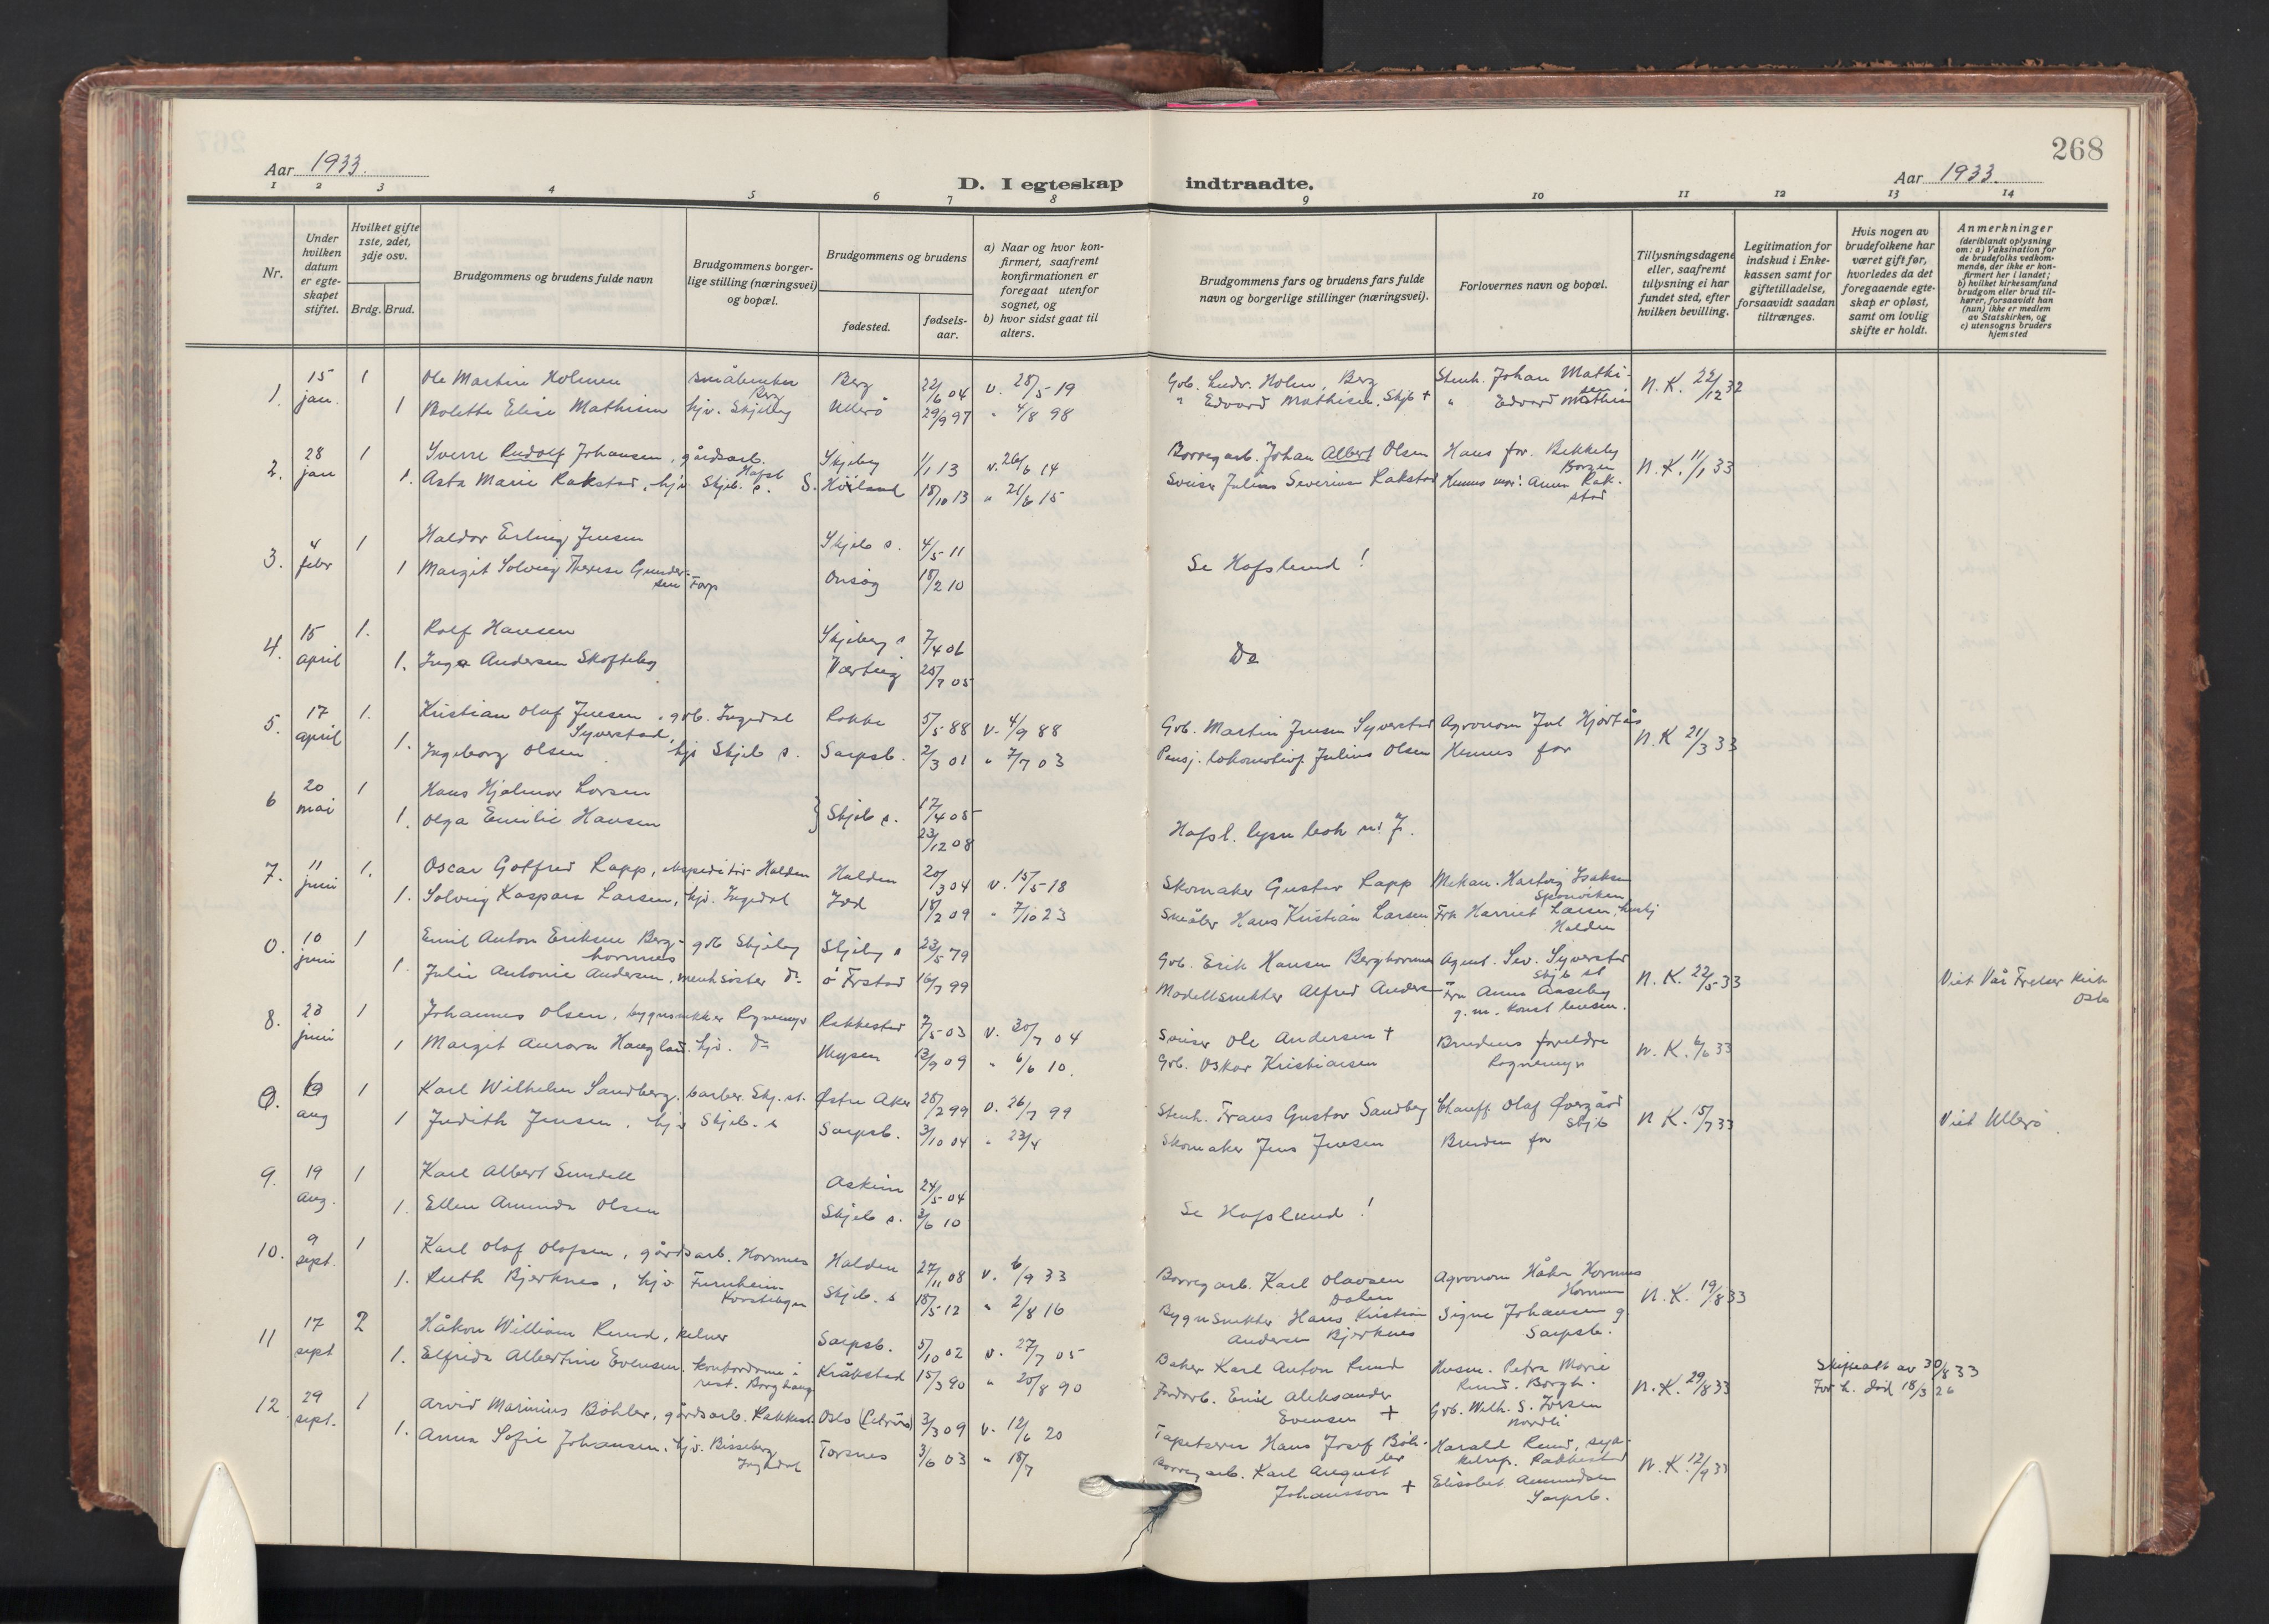 268
Aar 1933.
Aar 1933.
D. I egteskap indtraadte.
1 2 3 4 5 6 7 8 9 10 11 12 13 14
Nr.
Under hvilken datum er egteskapet stiftet.
Hvilket gifte 1ste, 2det, 3dje osv.
Brdg. Brud.
Brudgommens og brudens fulde navn
Brudgommens borgerlige stilling (næringsvei) og bopæl.
Brudgommens og brudens
fødested.
fødselsaar.
a) Naar og hvor konfirmert, saafremt konfirmationen er foregaat utenfor sognet, og
b) hvor sidst gaat til alters.
Brudgommens fars og brudens fars fulde navn og borgerlige stillinger (næringsvei).
Forlovernes navn og bopæl.
Tillysningsdagene eller, saafremt tillysning ei har fundet sted, efter hvilken bevilling.
Legitimation for indskud i Enkekassen samt for giftetilladelse, forsaavidt saadan tiltrænges.
Hvis nogen av brudefolkene har været gift før, hvorledes da det foregaaende egteskap er opløst, samt om lovlig skifte er holdt.
Anmerkninger
(deriblandt oplysning om: a) Vaksination for de brudefolks vedkommende, der ikke er konfirmert her i landet; b) hvilket kirkesamfund brudgom eller brud tilhører, forsaavidt han (hun) ikke er medlem av Statskirken, og c) utensogns bruders hjemsted
1. 15 jan. 1 Ole Martin Holmen småbruker Berg Berg 22/6 04 v. 28/5 19 Gvb. Ludv. Holm, Berg Stenh. Johan Mathisen N. K. 22/12 32
1 Bolette Elise Mathisen hjv. Skjeberg Ullerø 29/9 97 " 4/8 98 " Edvard Mathisen, Skjb + " Edvard Mathisen
2. 28 jan 1 Sverre Rudolf Johansen, gårdsarb. Hafsl Skjeberg 1/1 13 v. 26/6 14 Borregarb. Johan Albert Olsen Hans far. Bekkely Borgen N. K. 11/1 33
1. Asta Marie Rakstad, hjv Skjeb. s. S. Höiland 18/10 13 " 21/6 15 Sveiser Julius Severinsen Rakstad Hennes mor: Anna Rakstad
3. 4 febr 1 Haldor Erling Jensen Skjeb s. 4/5 11
1 Margit Solveig Therese Gundersen Torp Onsøy 18/2 10 Se Hafslund!
4. 15 april 1. Rolf Hansen Skjeberg s 7/4 06
1. Inga Andersen Skofteby Varteig 25/7 05 Do
5. 17 april 1. Kristian Olaf Jensen Syverstad, gvb. Ingedal Rokke 5/5 88 v. 4/9 88 Gvb. Martin Jensen Syverstad Agronom Jul Hjortås N. K 21/3 33
1. Ingeborg Olsen hjv Skjeb s. Sarpsb. 2/3 01 " 7/7 03 Pensj. lokomotivf. Julius Olsen Hennes far
6 20 mai 1 Hans Hjalmar Larsen Skjeb s. 17/4 05
1. Olga Emilie Hansen 23/12 08 Hafsl. lysn bok nr. 7.
7. 11 juni 1. Oscar Gotfred Rapp, ekspeditør Halden Halden 20/3 04 v. 15/5 18 Skomaker Gustav Rapp Mekan. Hartvig Isaksen Sponviken
1. Solveig Kaspara Larsen, hjv. Ingedal Idd 18/2 09 " 7/10 23 Småbr Hans Kristian Larsen Frk Harriet Larsen, hushj Halden
0. 10 juni 1 Emil Anton Eriksen Berghornnes gvb Skjeberg Skjeberg s 23/5 79 Gvb. Erik Hansen Berghornnes Agent. Sev. Syverstad Skjb st N. K. 22/5 33 Viet Vår Frelser kirk Oslo
1. Julie Antonie Andersen, menhsøster do ö Frstad 16/7 99 Modellsnekker Alfred Andersen Fru Anna Aaseby
8. 23 juni 1 Johannes Olsen, bygnsnekker Rognemyr Rakkestad 7/5 03 v. 30/7 04 Sveiser Ole Andersen + Brudens foreldre Rognemyr N. K. 6/6 33
1 Margit Aurora Haugland. hjv. do Mysen 13/9 09 " 6/6 10. Gvb. Oskar Kristiansen
0. 6 aug 1 Karl Wilhelm Sandberg, barber. Skj. st. Østre Aker 28/2 99 v. 26/7 99 Stenh. Frans Gustav Sandberg Chauff. Olaf Øvergård Skjb N K. 15/7 33 Viet Ullerø.
1 Judith Jensen, hjv Skjeb. s Sarpsb. 3/10 04 " 23/4 Skomaker Jens Jensen Brudens far
9. 19 aug. 1 Karl Albert Sundell Askim 24/5 04
1. Ellen Amunda Olsen Skjeb s. 3/6 10 Se Hafslund!
10. 9 sept. 1 Karl Olaf Olafsen, gårdsarb. Hornnes Halden 27/11 08 v. 6/9 33 Borregarb. Karl Olavsen Dalen Agronom Håkn Hornnes Hornnes N. K. 19/8 33
1. Ruth Bjerknes, hjv Furuheim Skjeb. s 18/5 12 " 2/8 16 Bygnsnekker Hans Kristian Andersen Bjerknes Signe Johansen g. Sarpsb.
11 17 sept 2 Håkon William Ruud, kelner Sarpsb. 5/10 02 v. 27/7 05 Baker Karl Anton Ruud Husm. Petra Marie Ruud. Borgh. N. K. 29/8 33 Skifteatt av 30/8 33
1. Elfrida Albertine Evensen. kontordame i rest. Borghaug Kråkstad 15/3 90 " 20/8 90 Jordarb. Emil Aleksander Evensen + Gvb. Wilh. S. Iversen Nordli For h. död 18/3 26
12 29 sept. 1 Arvid Marinius Böhler, gårdsarb. Rakkest. Oslo 3/3 09 v. 12/6 20 Tapetserer Hans Josef Böhler Harald Ruud, Rakkestad N. K. 12/9 33
1. Anna Sofie Johansen. hjv. Bisseberg Ingedal Torsnes 3/6 03 " 18/7 Borregarb. Karl August Johansson + Elisabet Amundsen Sarpsb.